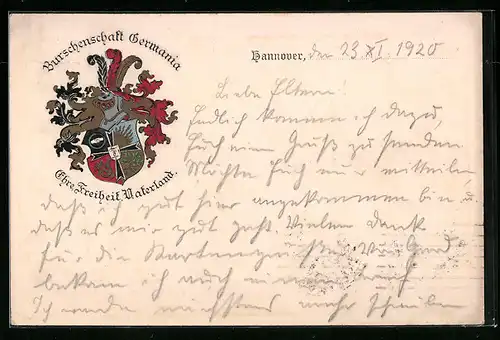 Burschenschaft Germania
Ehre, Freiheit, Vaterland.
Hannover, den 23 XI. 1920
Liebe Eltern!
Endlich komme ich dazu,
Euch einen Gruß zu senden
Möchte Euch nur mitteilen,
daß ich gut hier angekommen bin u.
daß es mir gut geht. Vielen Dank
für die Karten
bekam ich auch einen
Ich werde nächstens mehr schreiben